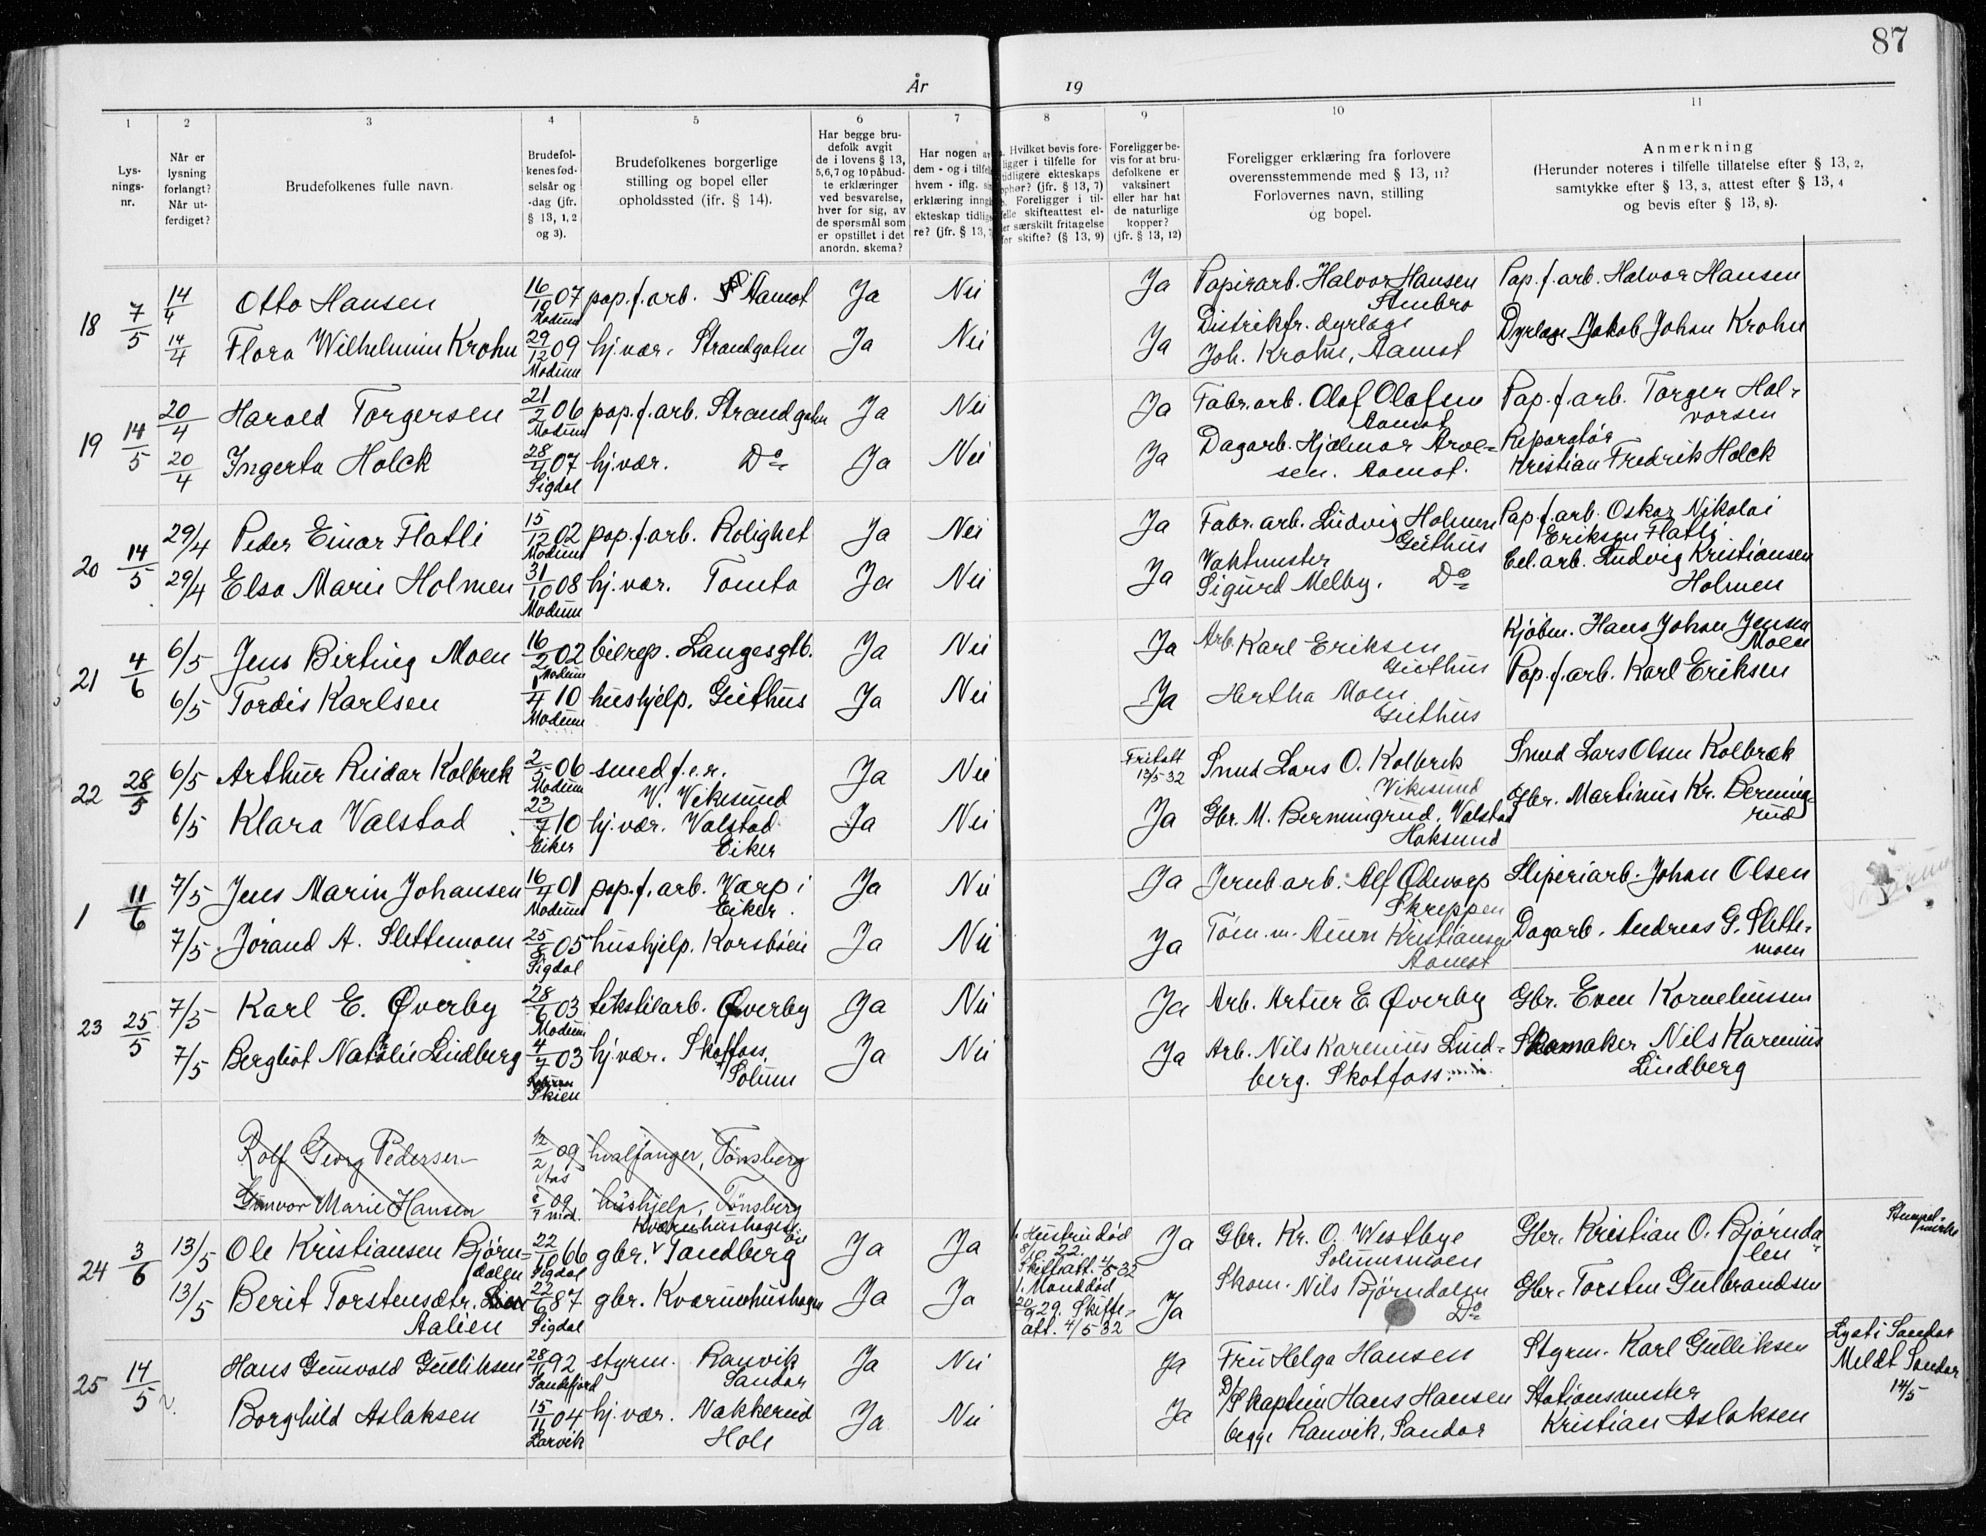 87
År 19
1 2 3 4 5 6 7 8 9 10 11
Lys-
nings-
nr.
Når er
lysning
forlangt?
Når ut-
ferdiget?
Brudefolkenes fulle navn.
Brudefol-
kenes fød-
selsår og
-dag (jfr.
§ 13, 1, 2
og 3).
Brudefolkenes borgerlige
stilling og bopel eller
opholdssted (jfr. § 14).
Har begge bru-
defolk avgit
de i lovens § 13,
5,6,7 og 10 påbud-
te erklæringer
ved besvarelse,
hver for sig, av
de spørsmål som
er opstillet i det
anordn. skema?
Har nogen
dem - og i tilfelle
hvem - iflg.
erklæring inngå
ekteskap tidlige
re? (jfr. § 13,
Hvilket bevis fore-
ligger i tilfelle for
tidligere ekteskaps
ophør? (jfr. § 13, 7)
Foreligger i til-
felle skifteattest el-
er særskilt fritagelse
for skifte? (§ 13, 9)
Foreligger be-
vis for at bru-
defolkene er
vaksinert
eller har hat
de naturlige
kopper?
(jfr. § 13, 12)
Foreligger erklæring fra forlovere
overensstemmende med § 13, 11?
Forlovernes navn, stilling
og bopel.
Anmerkning
(Herunder noteres i tilfelle tillatelse efter § 13, 2,
samtykke efter § 13, 3, attest efter § 13, 4
og bevis efter § 13, 8).
18 7/5 14/4 Otto Hansen 16/10 07 Modum pap.f.arb. Aamot Ja Nei Ja Papirarb. Halvor Hansen Pap.f.arb. Halvor Hansen
Stenbro
14/4 Flora Wilhelmine Krohn 29/12 09 Modum hj.vær. Strandgaten Ja Nei Ja Distriktsfr. dyrlæge Dyrlæge Jakob Johan Krohn
Joh. Krohn, Aamot
19 14/5 20/4 Harald Torgersen 21/2 06 Modum pap.f.arb. Strandgaten Ja Nei Ja Fabr.arb. Olaf Olafsen Pap.f.arb. Torger Hal-
Aamot vorsen
20/4 Ingerta Holck 28/4 07 Sigdal hj.vær. Do Ja Nei Ja Dagarb. Hjalmar Arve- Reparatør
sen. Aamot. Kristian Fredrik Holck
20 14/5 29/4 Peder Einar Flatli 15/12 02 Modum pap.f.arb. Rolighet Ja Nei Ja Fabr.arb. Ludvig Holmen Pap.f.arb. Oskar Nikolai
Geithus Eriksen Flatli
29/4 Elsa Marie Holmen 31/10 08 Modum hj.vær. Tomta Ja Nei Ja Vaktmester Cel.arb. Ludvig Kristiansen
Sigurd Melby. Do Holmen
21 4/6 6/5 Jens Birting Moen 16/2 02 Modum bilrep. Langesgt. Ja Nei Ja Arb. Karl Eriksen Kjøbm. Hans Johan Jensen
Geithus Moen
6/5 Tordis Karlsen 1/4 10 Modum hushjelp. Geithus Ja Nei Ja Hertha Moen Pap.f.arb. Karl Eriksen
Geithus
22 28/5 6/5 Arthur Reidar Kolbrek 2/5 06 Modum smed f.e.r. Ja Nei Fritatt 13/5 32 Smed Lars O. Kolbrek Smed Lars Olsen Kolbræk
V. Vikesund Vikesund
6/5 Klara Valstad 23/7 10 Eiker hj.vær. Valstad Ja Nei Ja Gbr. M. Berningrud, Valstad Gbr. Martinus Kr. Berning-
Eiker Hoksund rud
1 11/6 7/5 Jens Marin Johansen 16/4 01 Modum pap.f.arb. Varp i Ja Nei Ja Jernb.arb. Alf Ødevarp Sliperiarb. Johan Olsen
Eiker. Skreppen
7/5 Jorand A. Slettemoen 25/5 05 Sigdal hushjelp. Korsbøen Ja Nei Ja Tøm.m. Amon Kristiansen Dagarb. Andreas G. Slette-
Aamot moen
23 25/5 7/5 Karl E. Øverby 28/6 03 Modum tekstilarb. Øverby Ja Nei Ja Arb. Artur E. Øverby Gbr. Even Korneliussen
7/5 Bergliot Nathalie Lindberg 4/7 03 Skien hj.vær. Skotfoss, Ja Nei Ja Arb. Nils Karenius Lind- Skomaker Nils Karenius
Solum berg. Skotfoss. Lindberg
Rolf Georg Pedersen 12/2 09 Aas hvalfanger, Tønsberg
Gunvor Marie Hansen 09 Mod. hushjelp, Tønsberg
Kværnhushagen
24 3/6 13/5 Ole Kristiansen Bjørn- 22/10 66 Sigdal gbr. Tandberg Ja Ja 1. Hustru død Ja Gbr. Kr. O. Westbye Gbr. Kristian O. Bjørnda-
dalen 22. Skifteatt. 4/5 32 Solumsmoen len
Stempel-
merke
13/5 Berit Torstensdtr. 22/6 87 Sigdal gbr. Kværnhushagen Ja Ja 1. Mann død Ja Skom. Nils Bjørndalen Gbr. Torsten Gulbrandsen
Aalien 29. Skifte- Do
att. 4/5 32
25 14/5 Hans Gunvald Gulliksen 28/11 92 Sandefjord styrm. Ranvik Ja Nei Ja Fru Helga Hansen Styrm. Karl Gulliksen
Sandar
Lyst i Sandar
Meldt Sandar
14/5
Borghild Aslaksen 15/11 04 Larvik hj.vær. Nakkerud Ja Nei Ja D/S kaptein Hans Hansen Stationsmester
Hole begge Ranvik, Sandar Kristian Aslaksen